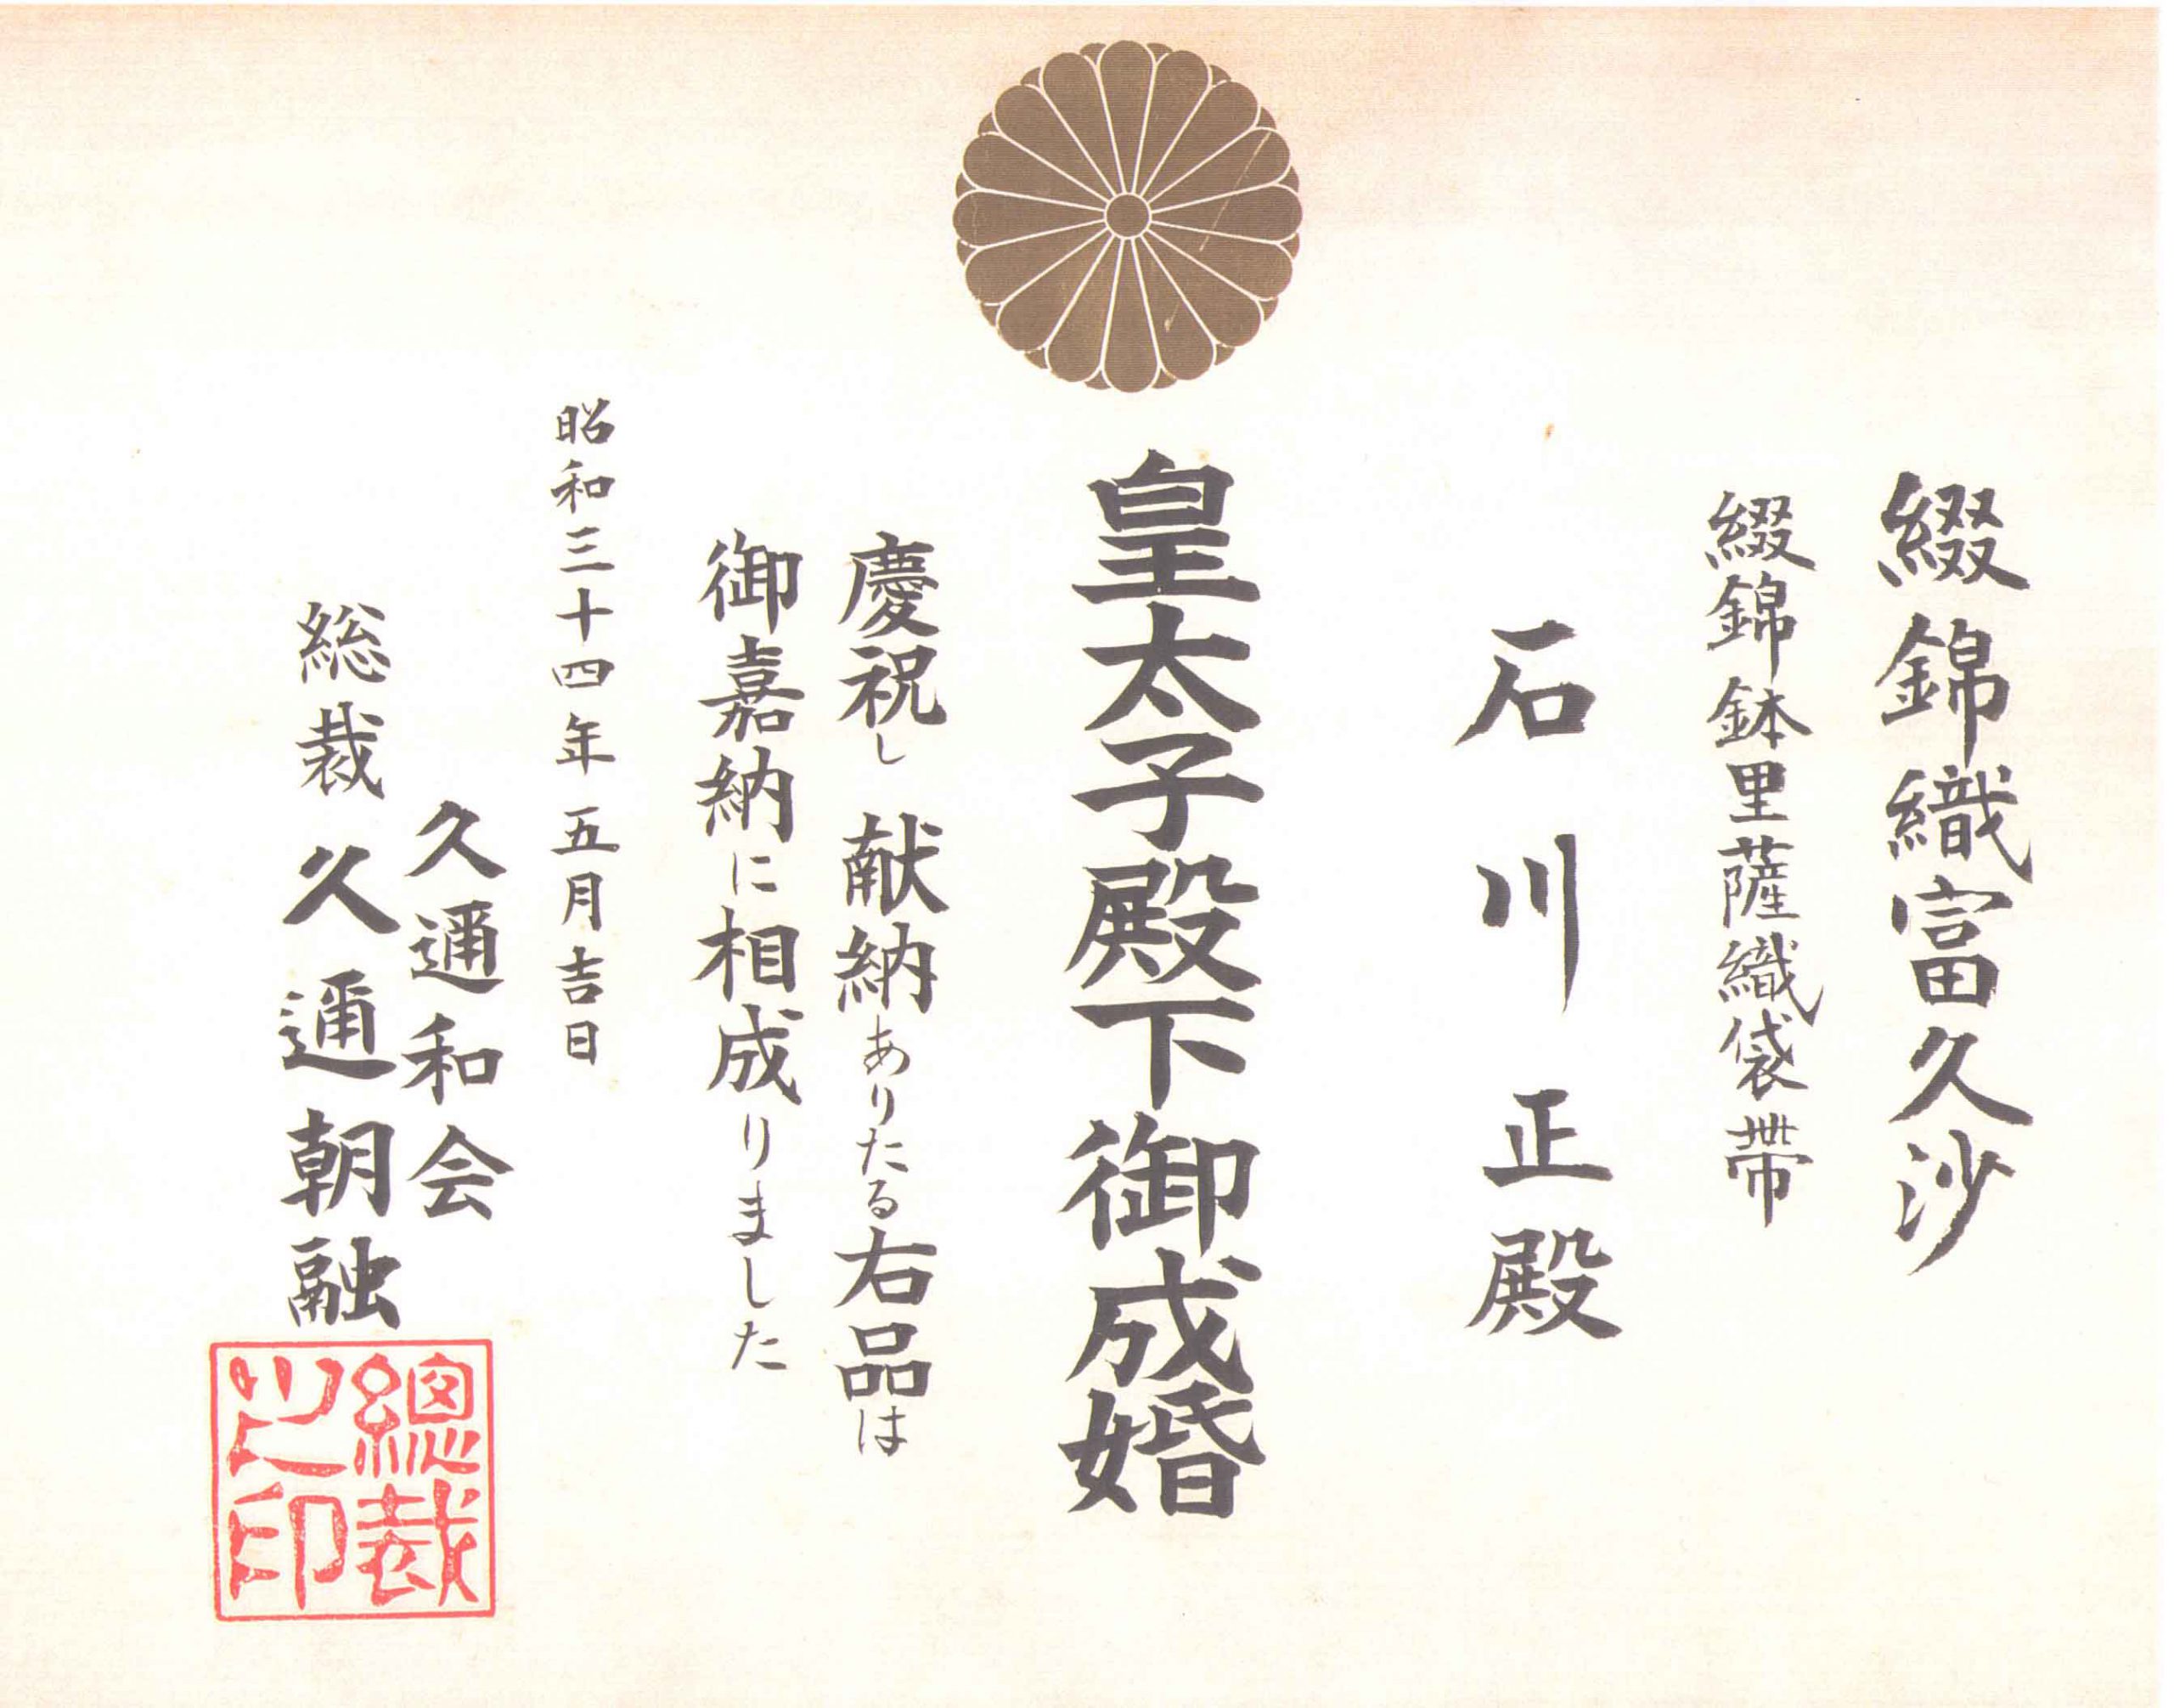 綴錦織富久沙
綴錦鉢里薩織袋帯
石川正殿
皇太子殿下御成婚
慶祝し 献納ありたる右品は
御嘉納に相成りました
昭和三十四年五月吉日
久邇和会
総裁 久邇朝融
總裁之印